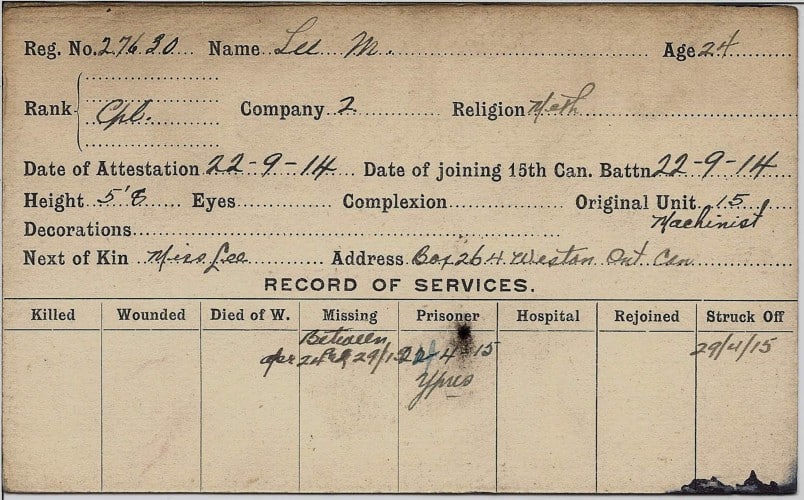 Reg. No. 27630 Name Lee M. Age 24
Rank Cpl. Company 2 Religion Meth
Date of Attestation 22-9-14 Date of joining 15th Can. Battn 22-9-14
Height 5'8 Eyes Complexion Original Unit 15
Decorations Machinist
Next of Kin Miss Lee Address Box 264 Weston Ont. Can
RECORD OF SERVICES.
Killed Wounded Died of W. Missing Prisoner Hospital Rejoined Struck Off
Between
29/15 22-4-15 29/4/15
Ypres